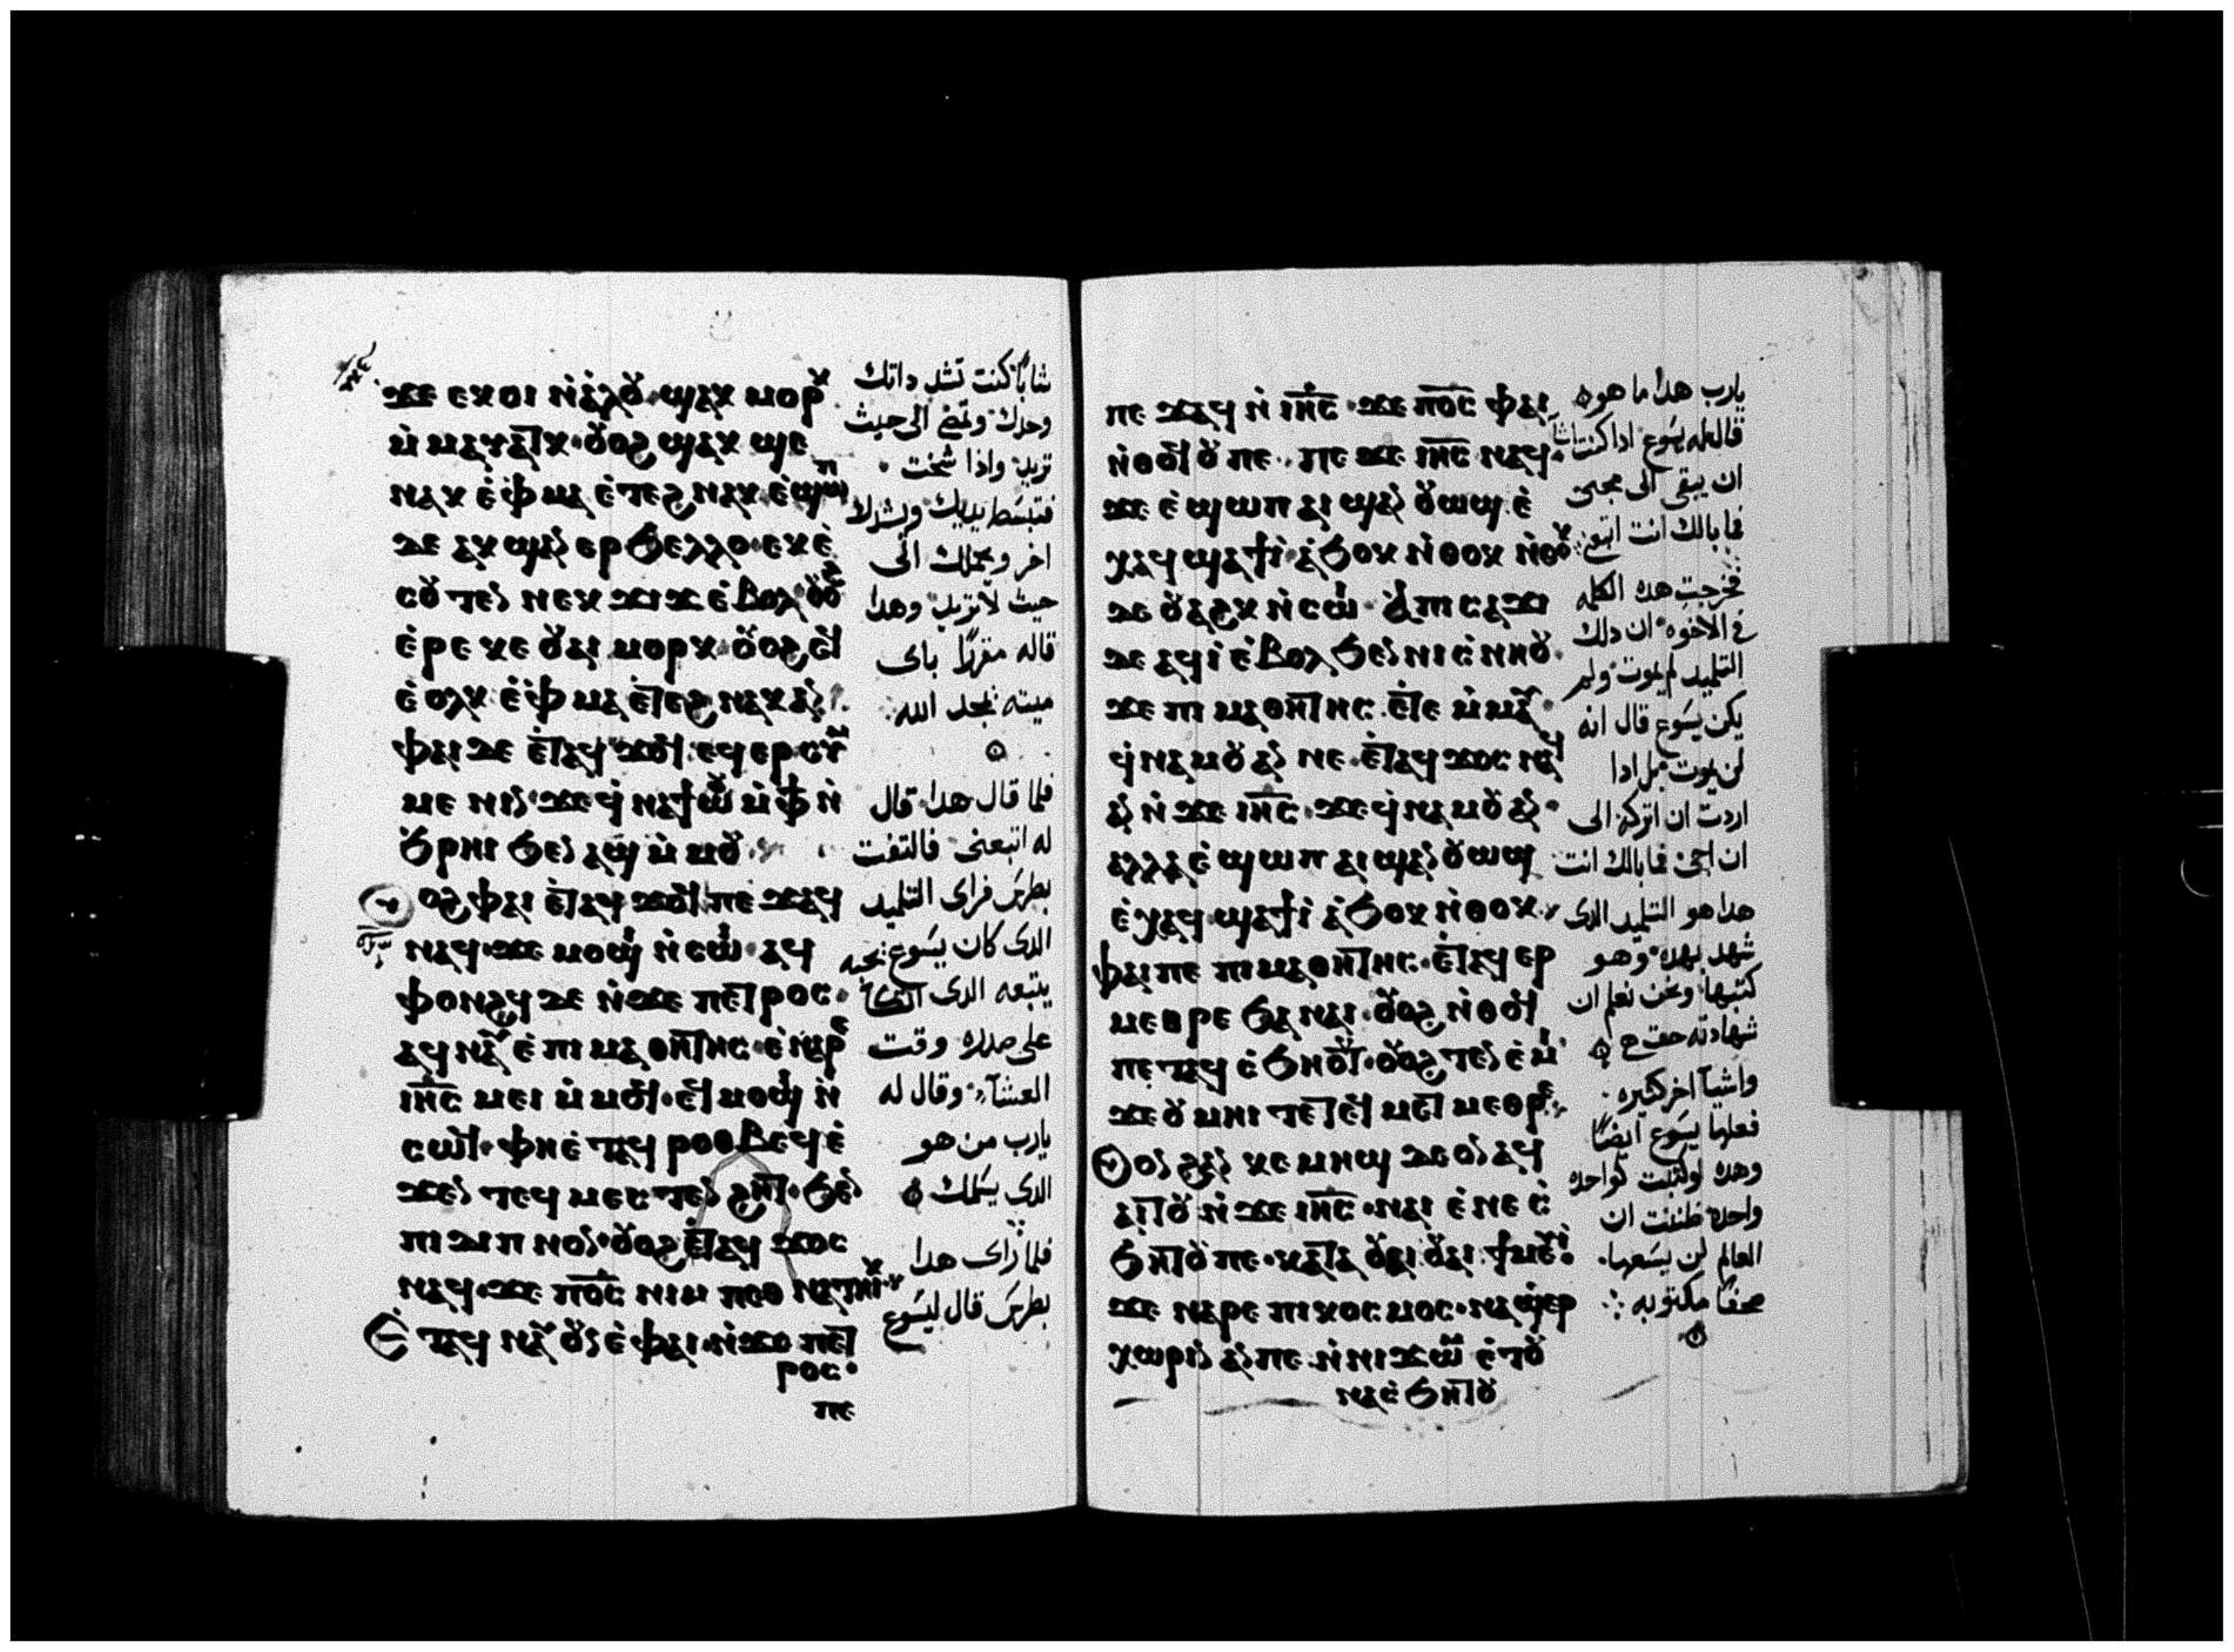 ϫⲉ ⲉⲕⲟⲓ ⲛ̀ⲁ̀ⲗⲟⲩ·ϣⲁⲕ ⲙⲟⲣⲕ
ⲙ̀ⲙⲁⲩⲁⲧⲕ·ⲟⲩⲟϩ ϣⲁⲕ ϣⲉ
ⲛⲁⲕ ⲉ̀ⲫⲙⲁ ⲉ̀ⲧⲉϩⲛⲁⲕ·ⲉ̀ϣⲱⲡ
ⲇⲉ ⲁⲕϣⲁⲛ ⲉⲣϧⲉⲗⲗⲟ·ⲉⲕⲉ̀
ⲥⲟⲩⲧⲉⲛ ⲛⲉⲕϫⲓϫ ⲉ̀ⲃⲟⲗ ⲟⲩⲟϩ
ⲉ̀ⲣⲉ ⲕⲉ ⲟⲩⲁⲓ ⲙⲟⲣⲕ·ⲟⲩⲟϩ ⲛ̀ⲧ
ⲉ̀ⲟⲗⲕ ⲉ̀ⲫⲙⲁ ⲉ̀ⲧⲉϩⲛⲁⲕ ⲁⲛ
ⲫⲁⲓ ⲇⲉ ⲉ̀ⲧⲁϥ ϫⲟⲧϥ·ⲉϥⲉⲣⲥⲩⲙ
ⲙⲉⲛⲓⲛ·ϫⲉ ϥ̀ⲛⲁϯⲱⲟⲩ ⲙ̀ⲫϯ ⲛ̀
ϧ̀ⲣⲏⲓ ϧⲉⲛ ⲁϣ ⲙ̀ⲙⲟⲩ
ⲟϩ ⲫⲁⲓ ⲉ̀ⲧⲁϥ ϫⲟⲧϥ ⲡⲉ ϫⲁϥ
ⲛⲁϥ·ϫⲉ ⲙⲟϣⲓ ⲛ̀ⲥⲱⲓ·ⲁϥ
ⲫⲟⲛϩϥ ⲇⲉ ⲛ̀ϫⲉ ⲡⲉⲧⲣⲟⲥ·
ⲁϥⲛⲁⲩ ⲉ̀ⲡⲓⲙⲁⲑⲏⲧⲏⲥ·ⲉ̀ⲛⲁⲣⲉ
ⲓⲏ̅ⲥ̅ ⲙⲉⲓ ⲙ̀ⲙⲟϥ·ⲉϥⲙⲟϣⲓ ⲛ̀
ⲥⲱϥ·ⲫⲏ ⲉ̀ⲧⲁϥ ⲣⲟⲑⲃⲉϥ ⲉ̀
ϫⲉⲛ ⲧⲉϥⲙⲉⲥⲧⲉⲛϩⲏⲧ·ϧⲉⲛ
ⲡⲓⲇⲓⲡⲛⲟⲛ·ⲟⲩⲟϩ ⲉ̀ⲧⲁϥ ϫⲟⲥ
ⲛⲁϥ·ϫⲉ ⲡⲟ̅ⲥ̅ ⲛⲓⲙ ⲡⲉⲑ ⲛⲁⲧⲏⲓⲕ
ⲉ̀ⲧⲁϥ ⲛⲁⲩ ⲟⲩⲛ ⲉ̀ⲫⲁⲓ·ⲛ̀ϫⲉ ⲡⲉⲧ
ⲣⲟⲥ·
ⲡⲉ
شابًا كنت تشد داتك
وحدك وتمضى الى حيث
تريد واذا شخت
فتبسط يديك ويشدك
اخر ويحملك الى
حيث لاتريد وهدا
قاله مقررًا باى
ميته يمجد الله
فلما قال هدا قال
له اتبعنى فالتفت
بطرس فراى التلميد
الدى كان يسوع يحبه
يتبعه الدى اتكا
على صدره وقت
العشآ وقال له
يارب من هو
الدى يسلمك
فلما راى هدا
بطرس قال ليسوع
ⲡⲉ ϫⲁϥ ⲛ̀ⲓⲏ̅ⲥ̅·ϫⲉ ⲡⲟ̅ⲥ̅ ⲫⲁⲓ
ⲛ̀ⲑⲟϥ ⲟⲩ ⲡⲉ·ⲡⲉ ϫⲉ ⲓⲏ̅ⲥ̅ ⲛⲁϥ·
ϫⲉ ⲉ̀ϣⲱⲡ ⲁⲓϣⲁⲛ ⲟⲩⲱϣ ⲉ̀
ⲭⲁϥ ϣⲁϯⲓ̀·ⲁ̀ϧⲟⲕ ⲛ̀ⲑⲟⲕ ⲛ̀ⲑⲟⲕ
ⲇⲉ ⲟⲩⲁϩⲕ ⲛ̀ⲥⲱⲓ·ⲁ̀ ⲡⲓⲥⲁϫⲓ
ⲇⲉ ⲁϥⲓ̀ ⲉ̀ⲃⲟⲗ ϧⲉⲛ ⲛⲓⲥ̀ⲛⲏⲟⲩ·
ϫⲉ ⲡⲓⲙⲁⲑⲏⲧⲏⲥ ⲉ̀ⲧⲉ ⲙ̀ⲙⲁⲩ·
ϥ̀ⲛⲁⲙⲟⲩ ⲁⲛ ⲛⲉ·ⲉ̀ⲧⲁϥ ϫⲟⲥ ⲛⲁϥ
ⲁⲛ ⲛ̀ϫⲉ ⲓⲏ̅ⲥ̅·ϫⲉ ϥ̀ⲛⲁⲙⲟⲩ ⲁⲛ·
ⲁⲗⲗⲁ ⲉ̀ϣⲱⲡ ⲁⲓϣⲁⲛ ⲟⲩⲱϣ
ⲉ̀ⲭⲁϥ ϣⲁϯⲓ̀ ⲁ̀ϧⲟⲕ ⲛ̀ⲑⲟⲕ
ⲫⲁⲓ ⲡⲉ ⲡⲓⲙⲁⲑⲏⲧⲏⲥ·ⲉ̀ⲧⲁϥ ⲉⲣ
ⲙⲉⲑⲣⲉ ϧⲁ ⲛⲁⲓ·ⲟⲩⲟϩ ⲛ̀ⲑⲟϥ
ⲡⲉ ⲧⲁϥ ⲥ̀ϧⲏⲧⲟⲩ·ⲟⲩⲟϩ ⲧⲉⲛ ⲉ̀ⲙⲓ
ϫⲉ ⲟⲩⲙⲏⲓ ⲧⲉ ⲧⲉϥⲙⲉⲧⲙⲉⲑⲣⲉ
ⲟⲛ ϩⲁⲛ ⲕⲉ ⲙⲏϣ ⲇⲉ ⲟⲛ ⲁϥ
ⲁⲓⲧⲟⲩ ⲛ̀ϫⲉ ⲓⲏ̅ⲥ̅·ⲛⲁⲓ ⲉ̀ⲛⲉ ⲥ̀
ϧⲏⲧⲟⲩ ⲡⲉ·ⲕⲁⲧⲁ ⲟⲩⲁⲓ ⲟⲩⲁⲓ·ϯⲙⲉⲩⲓ
ϫⲉ ⲛⲁⲣⲉ ⲡⲓⲕⲟⲥⲙⲟⲥ·ⲛⲁϣ ⲉⲣ
ⲭⲱⲣⲓⲛ ⲁⲛ ⲡⲉ ⲛ̀ⲛⲓϫⲱⲙ ⲉ̀ⲧⲟⲩ
ⲛⲁⲥ̀ϧⲏⲧⲟⲩ
يارب هدا ما هو
قال له يسوع ادا كنت اشآ
ان يبقى الى مجى
فما بالك انت اتبعنى
فخرجت هده الكلمه
فى الاخوه ان دلك
التلميد لم يموت ولم
يكن يسوع قال انه
لن يموت بل ادا
اردت ان اتركه الى
ان اجى فما بالك انت
هدا هو التلميد الدى
شهد بهده وهو
كتبها ونحن نعلم ان
شهادته حق هى
واشيآ اخر كثيره
فعلها يسوع ايضًا
وهده لو كتبت واحده
واحده ظننت ان
العالم لن يسعها
صحفًا مكتوبه